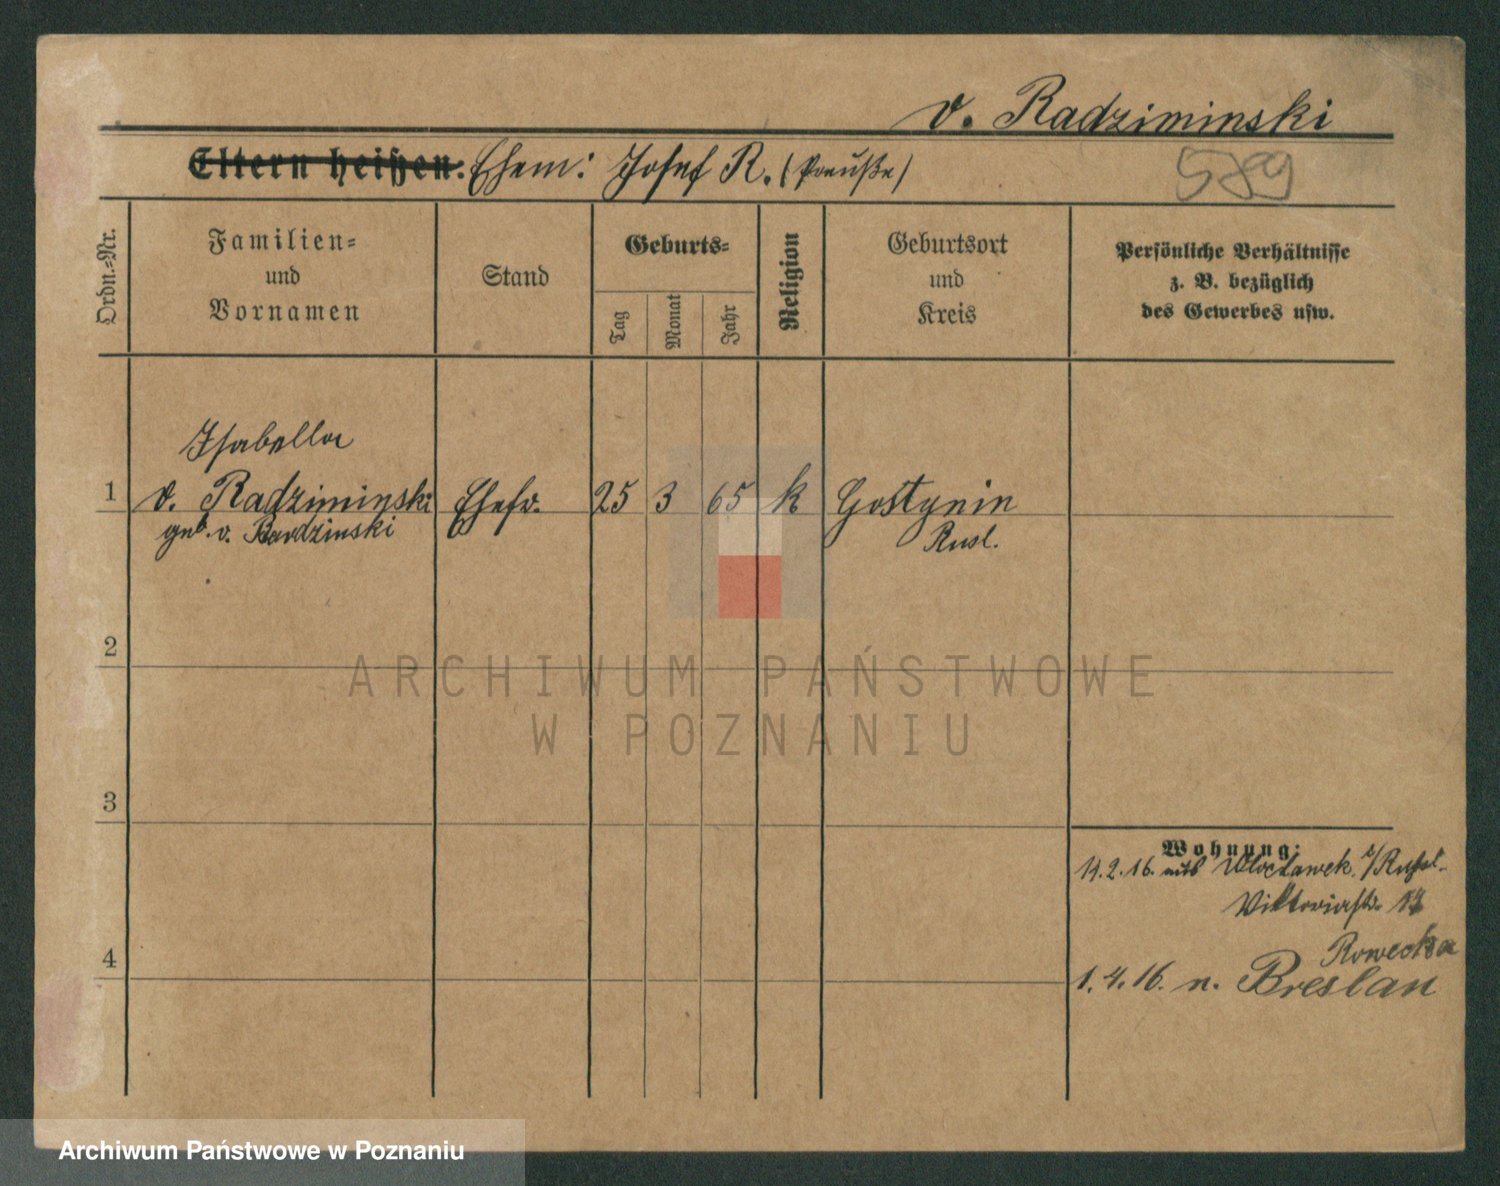 v. Radziminski
Eltern heißen: Ehem: Josef R. (Preuße)
589
Ordn.=Nr.
Familien=
und
Vornamen
Stand
Geburts=
Tag
Monat
Jahr
Religion
Geburtsort
und
Kreis
Persönliche Verhältnisse
z. B. bezüglich
des Gewerbes usw.
Isabella
1 v. Radziminski Ehefr. 25 3 65 k Gostynin
geb. v. Bardzinski Rusl.
2
ARCHIWUM PAŃSTWOWE
W POZNANIU
3
Wohnung:
14.2.16. aus Wloclawek i/Rußl.
Viktoriastr.
Rowecka
4
1.4.16. n. Breslau
Archiwum Państwowe w Poznaniu